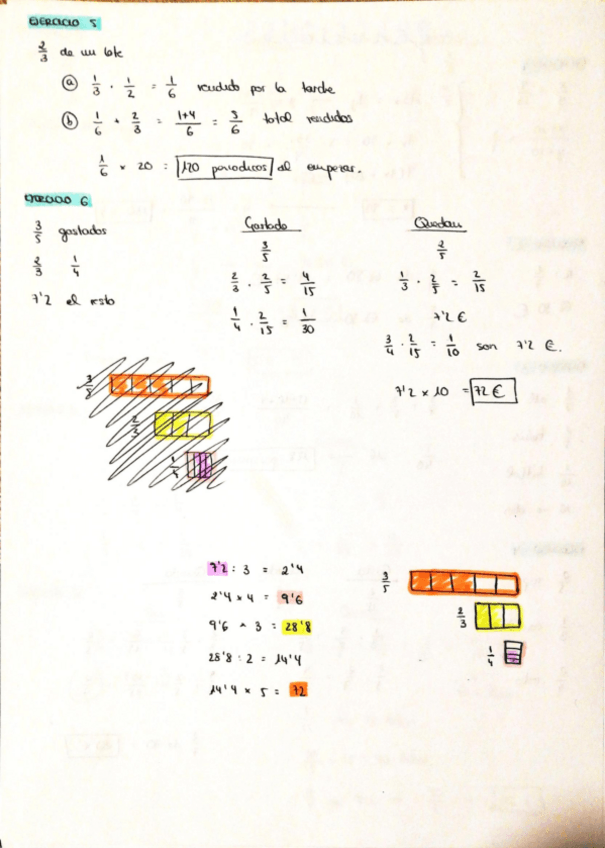 EJERCICIO 5
2/3 de un lote
a) 1/3 · 1/2 = 1/6 vendido por la tarde
b) 1/6 + 2/3 = 1+4/6 = 3/6 total vendidos
1/6 × 20 = 120 periodicos al empezar.
EJERCICIO 6
3/5 gastados
2/3 1/4
7'2 el resto
Gastado
3/5
2/3 · 2/5 = 4/15
1/4 · 2/15 = 1/30
Quedan
2/5
1/3 · 2/5 = 2/15
7'2 €
3/4 · 2/15 = 1/10 son 7'2 €.
7'2 × 10 = 72 €
3/5
2/3
1/4
7'2 : 3 = 2'4
2'4 × 4 = 9'6
9'6 × 3 = 28'8
28'8 : 2 = 14'4
14'4 × 5 = 72
3/5
2/3
1/4